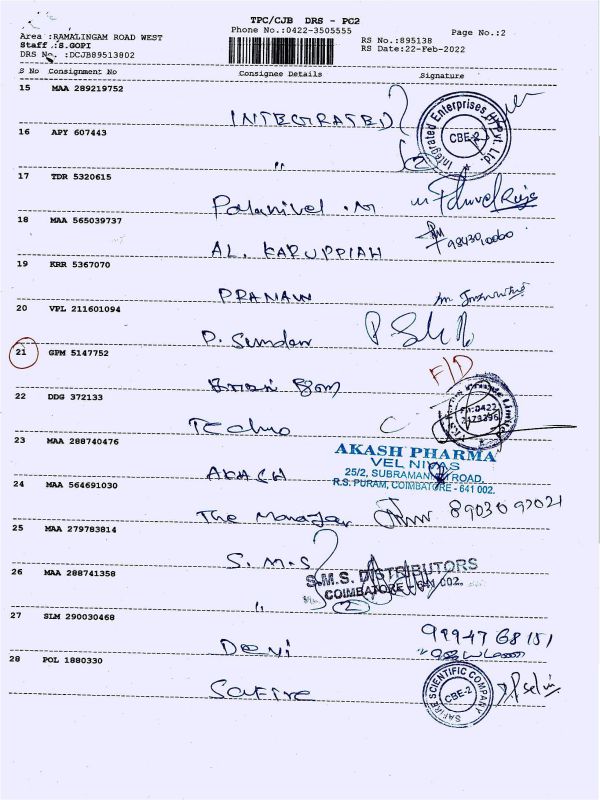 TPC/CJB DRS - PC2
Phone No.:0422-3505555
Page No.:2
Area :RAMALINGAM ROAD WEST
RS No.:895138
Staff :S.GOPI
RS Date:22-Feb-2022
DRS No. :DCJB89513802
S No Consignment No Consignee Details Signature
15 MAA 289219752
INTEGRATED
Integrated Enterprises (I) Pvt. Ltd.
CBE-2
16 APY 607443
"
(2)
17 TDR 5320615
Palanivel . M
18 MAA 565039737
AL. KARUPPIAH
19 KRR 5367070
PRANAW
20 VPL 211601094
P. Sundar
21 GPM 5147752
F/D
22 DDG 372133
Techno
Limited
23 MAA 288740476
AKASH PHARMA
VEL NIVAS
25/2, SUBRAMANIAM ROAD,
R.S. PURAM, COIMBATORE - 641 002.
AKACH
24 MAA 564691030
The Manager
89030 97021
25 MAA 279783814
S.M.S
26 MAA 288741358
S.M.S. DISTRIBUTORS
COIMBATORE - 641 002.
"
(2)
27 SLM 290030468
Devi
99947 68151
28 POL 1880330
Safire
SAFIRE SCIENTIFIC COMPANY
CBE-2